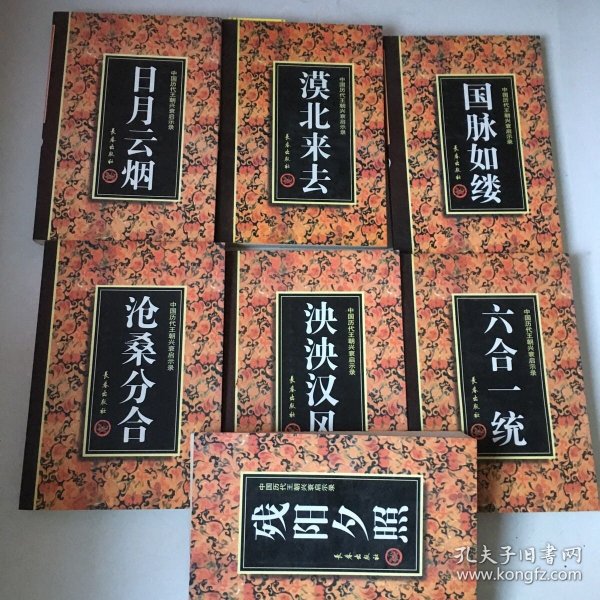 日月云烟
中国历代王朝兴衰启示录
长春出版社
漠北来去
中国历代王朝兴衰启示录
长春出版社
国脉如缕
中国历代王朝兴衰启示录
长春出版社
沧桑分合
中国历代王朝兴衰启示录
长春出版社
泱泱汉风
中国历代王朝兴衰启示录
长春出版社
六合一统
中国历代王朝兴衰启示录
长春出版社
中国历代王朝兴衰启示录
残阳夕照
长春出版社
孔夫子旧书网
www.kongfz.com